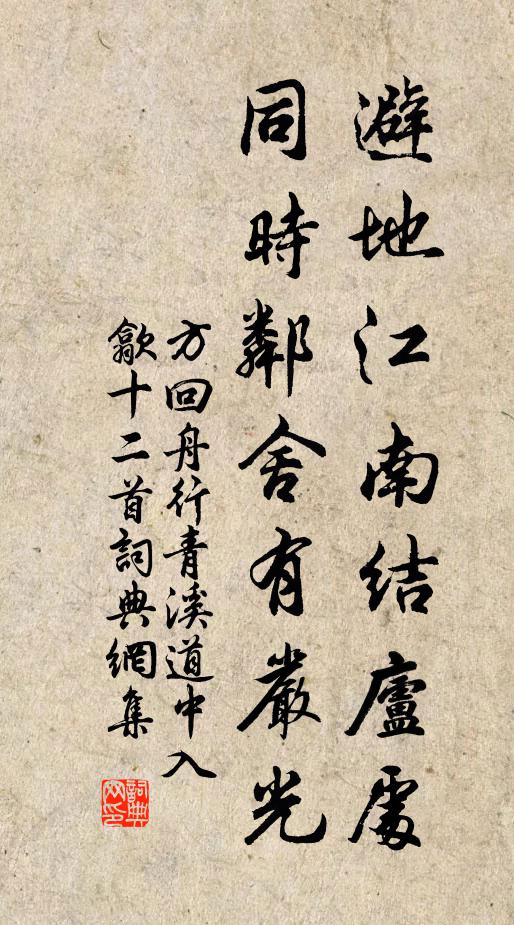 避地江南結廬處
同時鄰舍有嚴光
方回舟行青溪道中入
歙十二首詞典網集
詞典網印